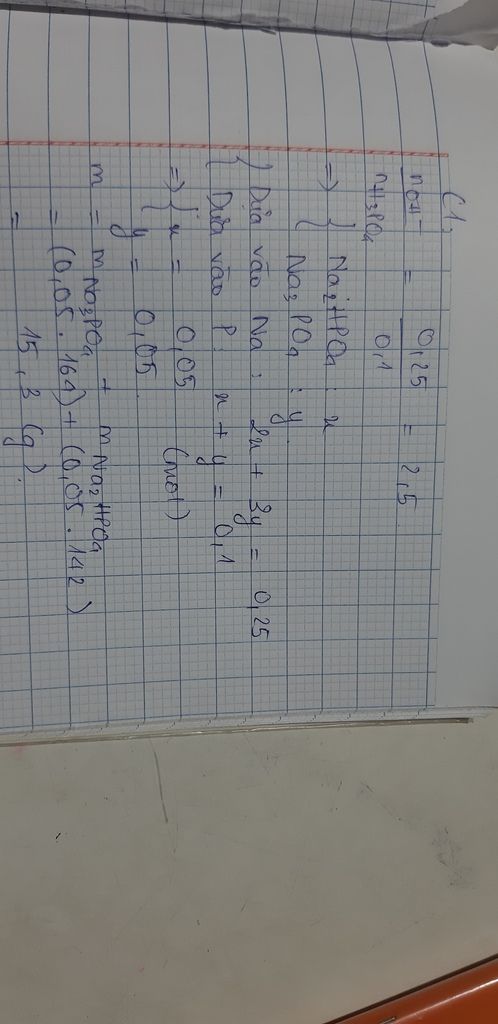 C1,
nOH⁻ / nH₃PO₄ = 0,25 / 0,1 = 2,5
=> { Na₂HPO₄ : x
Na₃PO₄ : y
{ Dựa vào Na : 2x + 3y = 0,25
Dựa vào P : x + y = 0,1
=> { x = 0,05 (mol)
y = 0,05
m = mNa₃PO₄ + mNa₂HPO₄
= (0,05 . 164) + (0,05 . 142)
= 15,3 (g).